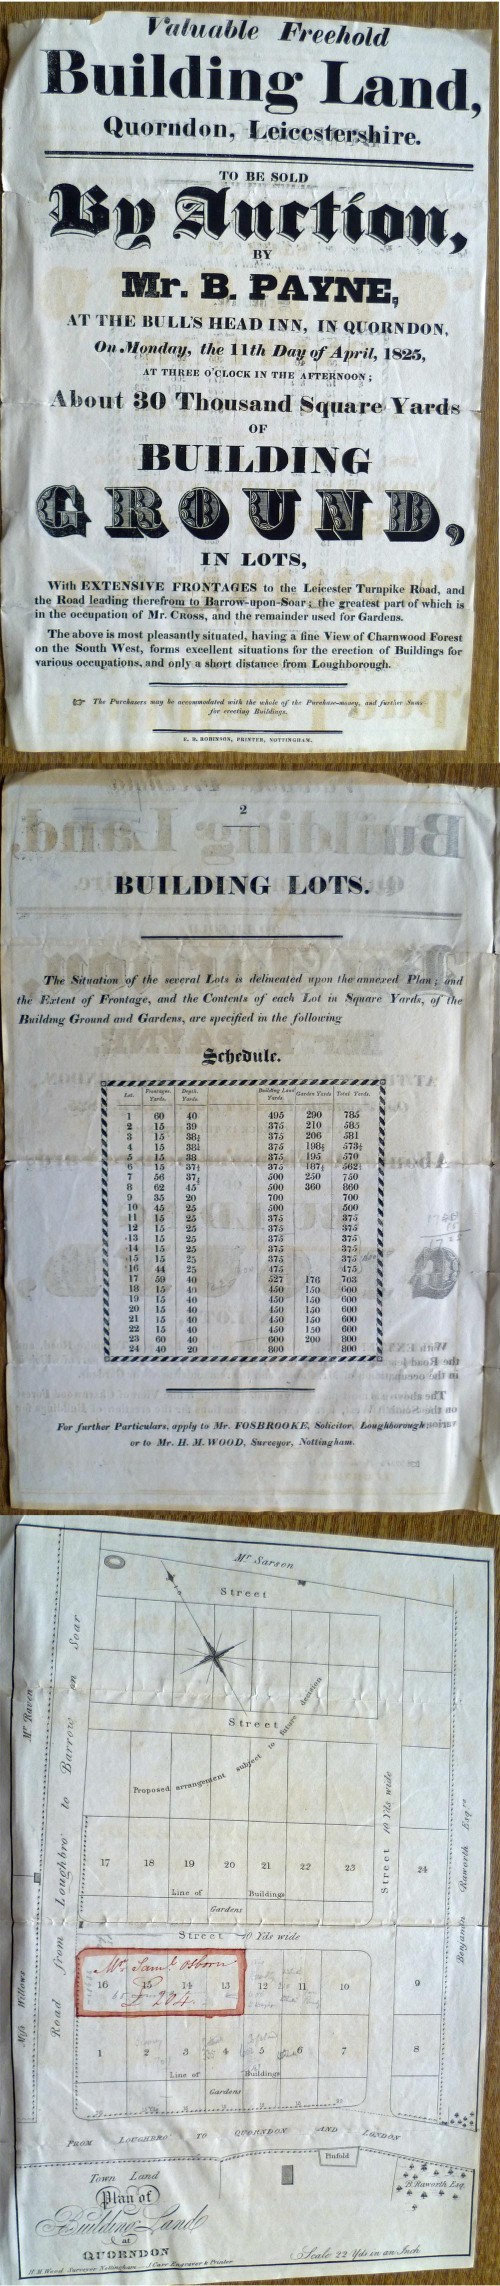 Valuable Freehold
Building Land,
Quorndon, Leicestershire.
TO BE SOLD
By Auction,
BY
Mr. B. PAYNE,
AT THE BULL'S HEAD INN, IN QUORNDON,
On Monday, the 11th Day of April, 1825,
AT THREE O'CLOCK IN THE AFTERNOON;
About 30 Thousand Square Yards
OF
BUILDING
GROUND,
IN LOTS,
With EXTENSIVE FRONTAGES to the Leicester Turnpike Road, and
the Road leading therefrom to Barrow-upon-Soar; the greatest part of which is
in the occupation of Mr. CROSS, and the remainder used for Gardens.
The above is most pleasantly situated, having a fine View of Charnwood Forest
on the South West, forms excellent situations for the erection of Buildings for
various occupations, and only a short distance from Loughborough.
☞ The Purchasers may be accommodated with the whole of the Purchase-money, and further Sums
for erecting Buildings.
E. B. ROBINSON, PRINTER, NOTTINGHAM.
2
BUILDING LOTS.
The Situation of the several Lots is delineated upon the annexed Plan; and
the Extent of Frontage, and the Contents of each Lot in Square Yards, of the
Building Ground and Gardens, are specified in the following
Schedule.
Lot. Frontage Yards. Depth Yards. Building Land Yards. Garden Yards Total Yards.
1 60 40 495 290 785
2 15 39 375 210 585
3 15 38½ 375 206 581
4 15 38¼ 375 198½ 573½
5 15 38 375 195 570
6 15 37½ 375 187½ 562½
7 56 37½ 500 250 750
8 62 45 500 360 860
9 35 20 700 700
10 45 25 500 500
11 15 25 375 375
12 15 25 375 375
13 15 25 375 375
14 15 25 375 375
15 15 25 375 375
16 44 25 475 475
17 59 40 527 176 703
18 15 40 450 150 600
19 15 40 450 150 600
20 15 40 450 150 600
21 15 40 450 150 600
22 15 40 450 150 600
23 60 40 600 200 800
24 40 20 800 800
For further Particulars, apply to Mr. FOSBROOKE, Solicitor, Loughborough;
or to Mr. H. M. WOOD, Surveyor, Nottingham.
Mr Sarson
Street
Street
Proposed arrangement subject to future decision
Mr Raven
Road from Loughbro' to Barrow on Soar
Miss Willows
Street 10 Yds wide
Benjamin Raworth Esqre
17 18 19 20 21 22 23 24
Line of Buildings
Gardens
Street 10 Yds wide
Mr. Saml. Osborn
£ 204.
16 15 14 13 12 11 10 9
1 2 3 4 5 6 7 8
Line of Buildings
Gardens
FROM LOUGHBRO' TO QUORNDON AND LONDON
Pinfold
B. Raworth Esq.
Town Land
Plan of
Building Land
at
QUORNDON
Scale 22 Yds in an Inch
H.M Wood Surveyor Nottingham — J. Carr Engraver & Printer